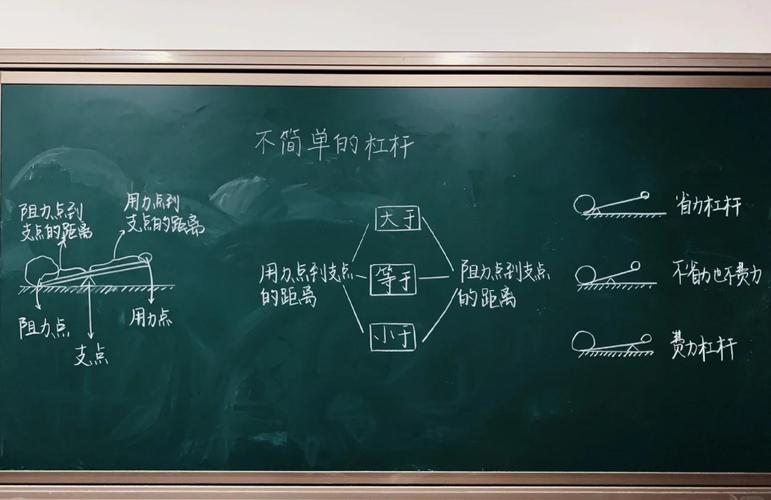 不简单的杠杆
阻力点到
支点的距离
用力点到
支点的距离
阻力点
支点
用力点
用力点到支点
的距离
大于
等于
小于
阻力点到支点
的距离
省力杠杆
不省力也不费力
费力杠杆